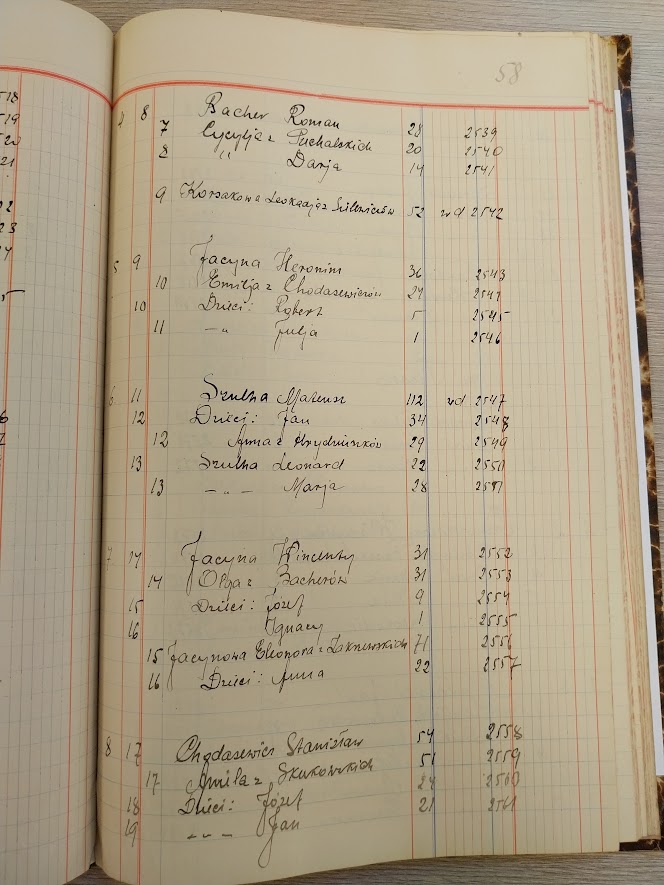 518
519
520
21
22
23
58
4 8 Bacher Roman 28 2539
7 Cycylja z Puchalskich 20 2540
8 " Darja 14 2541
9 Korsakowa Leokadja z 52 wd 2542
5 9 Jacyna Heronim 36 2543
10 Emilja z Chodasewiczów 27 2544
10 Dzieci: Robert 5 2545
11 — " Julja 1 2546
6 11 Szulha Mateusz 112 wd 2547
12 Dzieci: Jan 34 2548
12 Anna z 29 2549
13 Szulha Leonard 22 2550
13 — " — Marja 28 2551
7 14 Jacyna Wincenty 31 2552
14 Olga z Bacherów 31 2553
15 Dzieci: Józef 9 2554
16 Ignacy 1 2555
15 Jacynowa Eleonora z 71 2556
16 Dzieci: Anna 22 2557
8 17 Chodasewicz Stanisław 54 2558
17 z Skukowskich 51 2559
18 Dzieci: Józef 24 2560
19 — " — Jan 21 2561